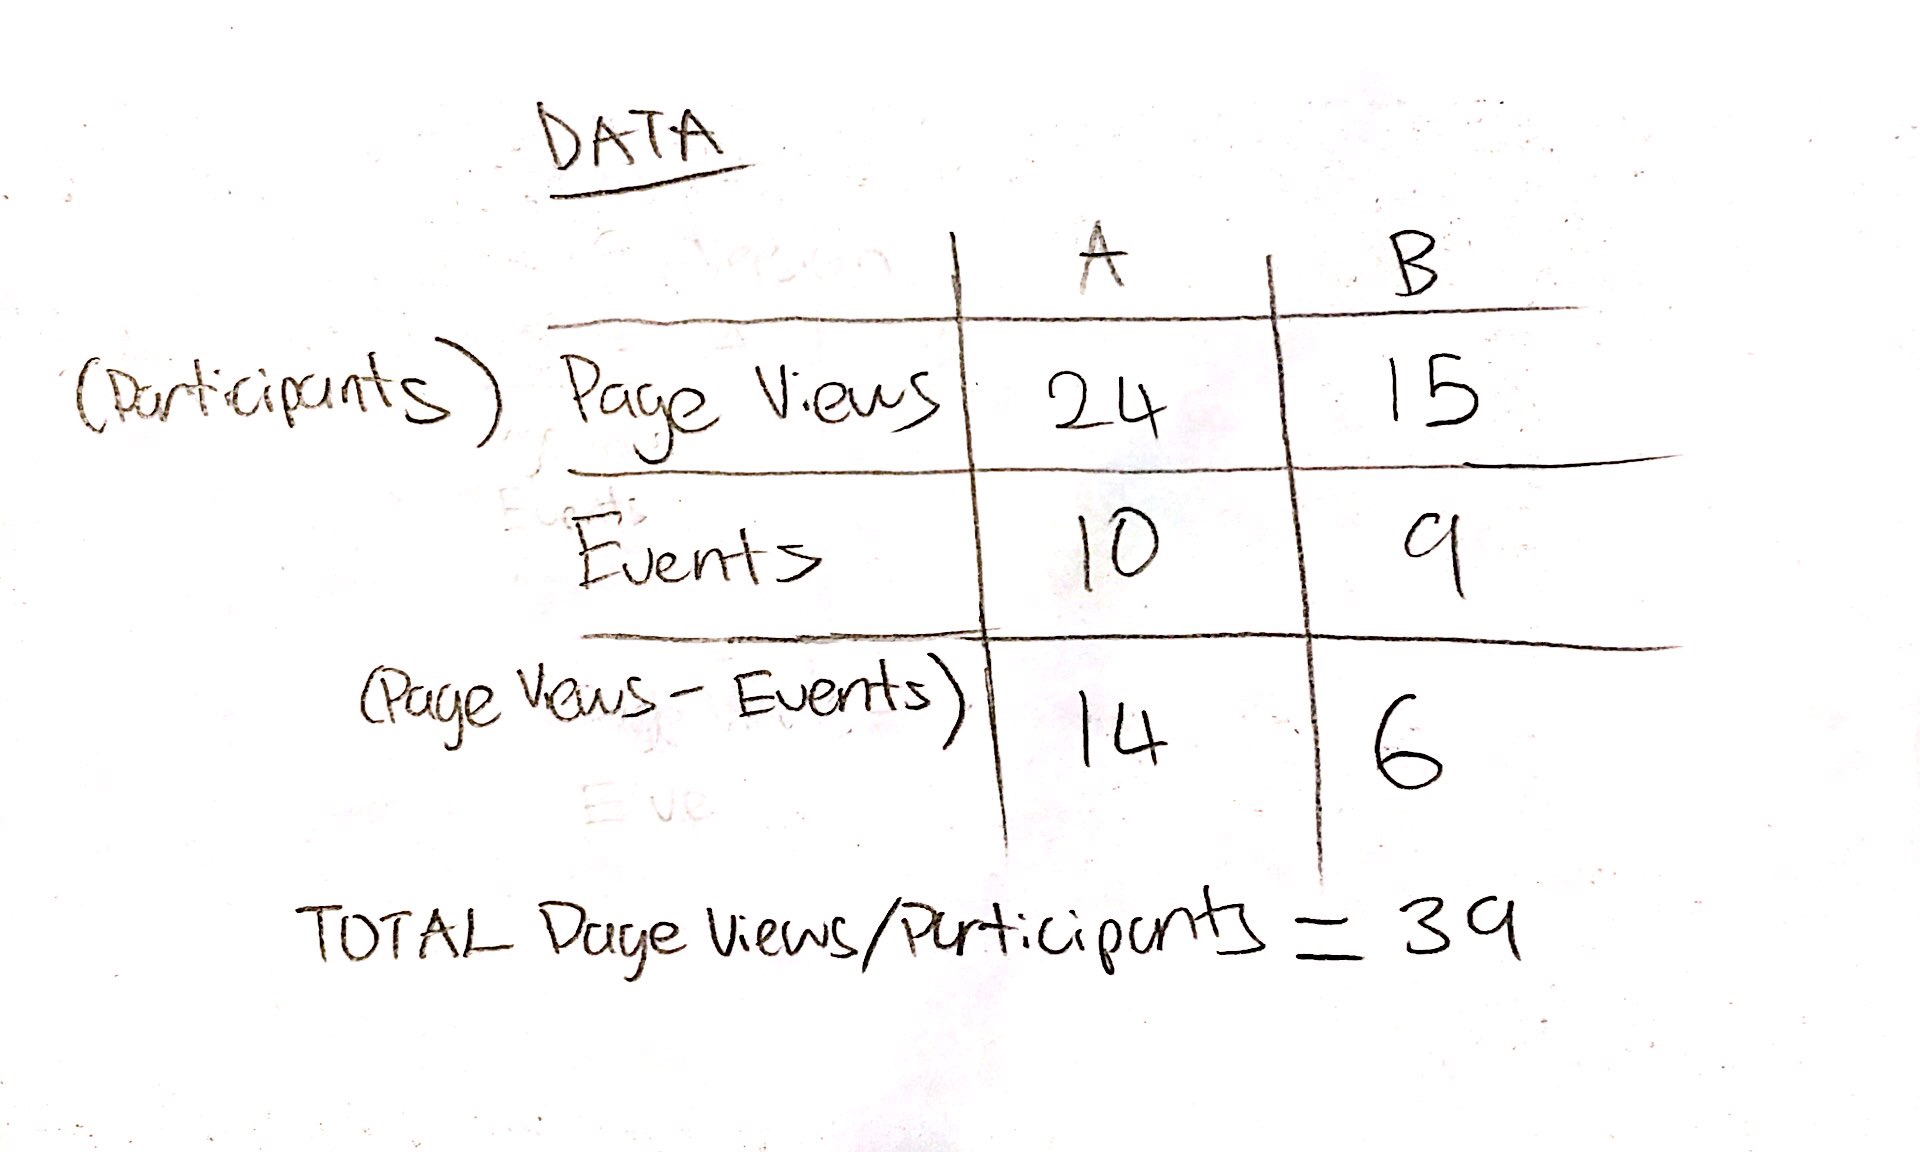 DATA
A B
(Participants) Page Views 24 15
Events 10 9
(Page Views - Events) 14 6
TOTAL Page Views/Participants = 39